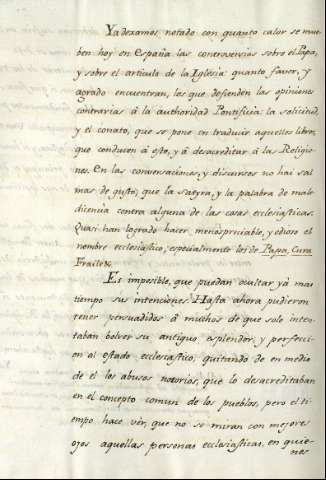 Ya dexamos notado con quanto calor se mue
ben hoy en España las controversias sobre el Papa,
y sobre el articulo de la Iglesia: quanto favor, y
agrado encuentran, los que defienden las opiniones
contrarias á la authoridad Pontificia: la solicitud,
y el conato, que se pone en traducir aquellos libros,
que conducen á esto, y á desacreditar á las Religio-
nes. En las conversaciones, y discursos no hai sal
mas de gusto; que la Satyra, y la palabra de male-
dicencia contra alguna de las cosas ecclesiasticas.
Quasi han logrado hacer menospreciable, y odioso el
nombre ecclesiastico, especialmente los de Papa, Cura
Frailes.
Es imposible, que puedan ocultar yá mas
tiempo sus intenciones. Hasta ahora pudieron
tener persuadidos á muchos de que solo inten-
taban bolver su antiguo esplendor, y perfecci-
on al estado ecclesiastico, quitando de en medio
de él los abusos notorios, que lo desacreditaban
en el concepto comun de los pueblos, pero el ti-
empo hace ver, que no se miran con mejores
ojos aquellas personas ecclesiasticas, en quie-
nes